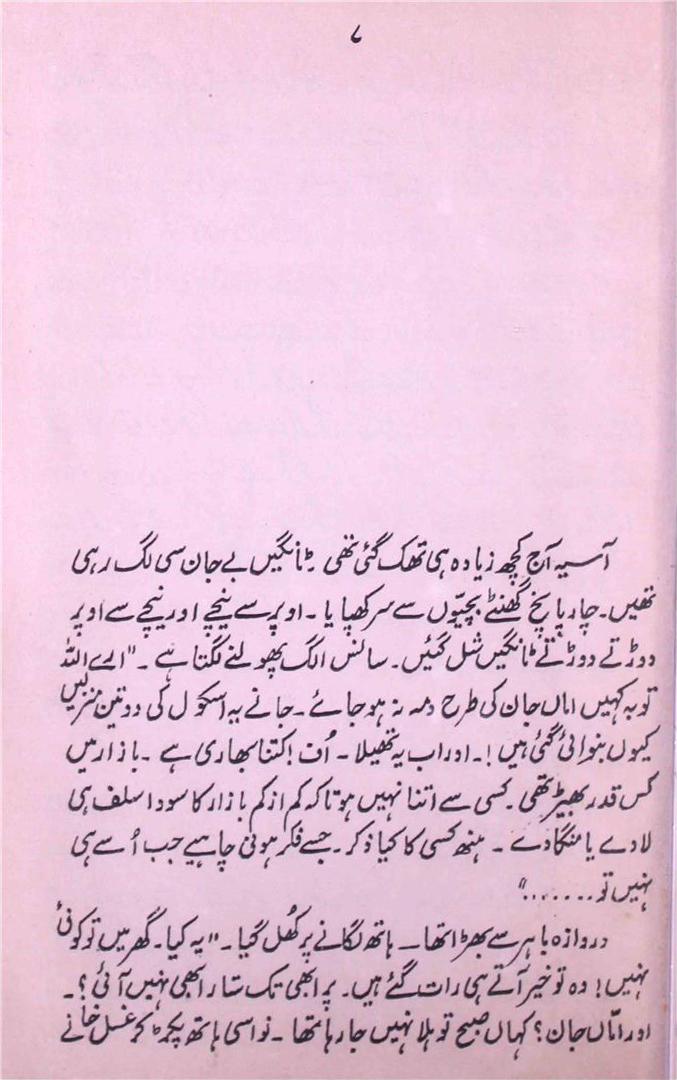 ۸
آسیہ آج کچھ زیادہ ہی تھک گئی تھی۔ ٹانگیں بے جان سی لگ رہی
تھیں۔ چار پانچ گھنٹے بچیّوں سے سر کھپایا۔ اوپر سے نیچے اور نیچے سے اوپر
دوڑتے دوڑتے ٹانگیں شل گئیں۔ سانس الگ پھولنے لگتا ہے۔ "ارے اللہ
توبہ کہیں اماں جان کی طرح دمہ نہ ہو جائے۔ جانے یہ اسکول کی دو تین منزلیں
کیوں بنوائی گئی ہیں!۔ اور اب یہ تھیلا۔ اُف! کتنا بھاری ہے۔ بازار میں
کس قدر بھیڑ تھی۔ کسی سے اتنا نہیں ہوتا کہ کم از کم بازار کا سودا سلف ہی
لادے یا منگادے۔ ہنھ کسی کا کیا ذکر۔ جسے فکر ہونی چاہیے جب اُسے ہی
نہیں تو......."
دروازہ باہر سے بھڑا تھا۔ ہاتھ لگانے پر کھُل گیا۔ "یہ کیا۔ گھر میں تو کوئی
نہیں! وہ تو خیر آتے ہی رات گئے ہیں۔ پر ابھی تک سارا بھی نہیں آئی؟۔
اور امّاں جان؟ کہاں صبح تو ہلا نہیں جا رہا تھا۔ نواسی ہاتھ پکڑ کر غسل خانے